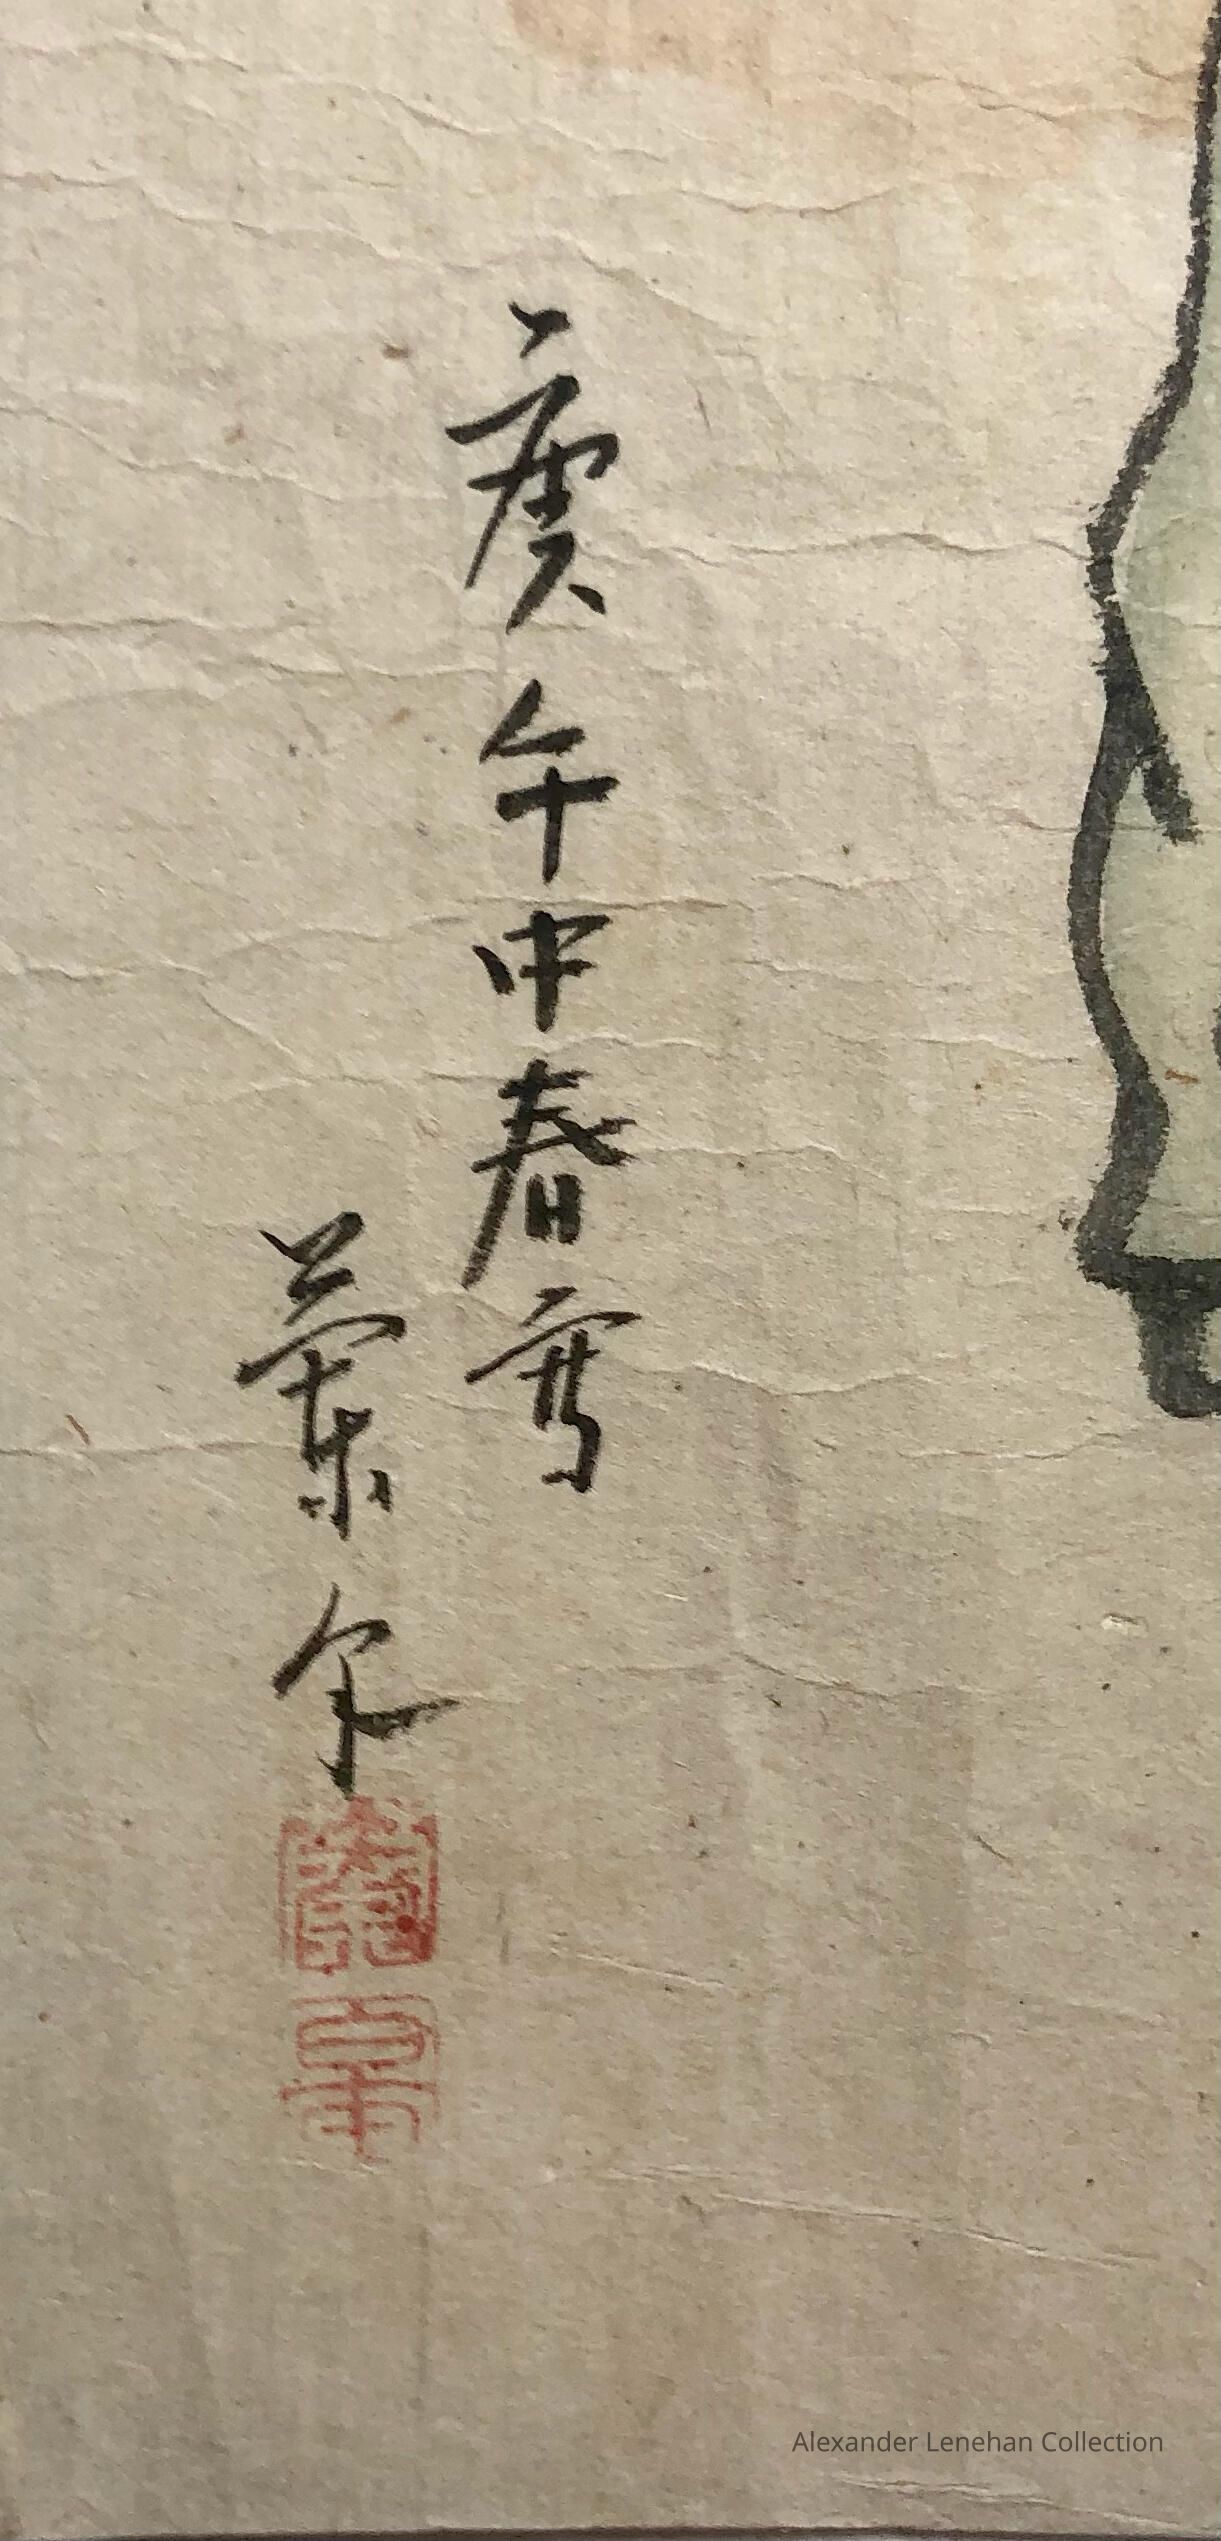 庚午中春寫
蘭泉
Alexander Lenehan Collection